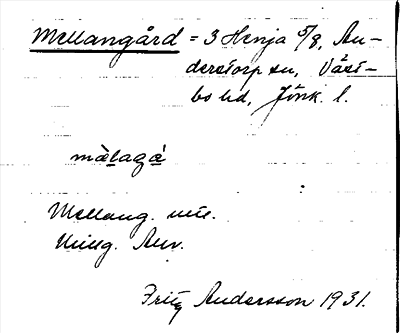 Mellangård = 3 Henja 5/8, An-
derstorp sn, Väst-
bo hd, Jönk. l.
màlagá
Mellang. utt.
Uuug. Anv.
Fritz Andersson 1931.